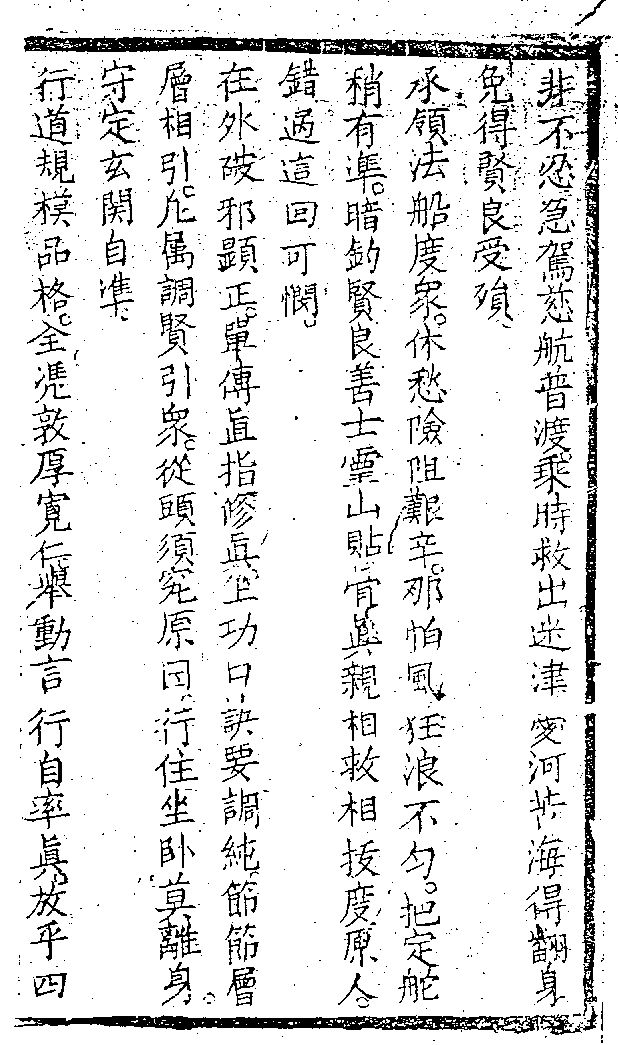 非不忍急駕慈航普渡。乘時救出迷津愛河苦海得翻身
免得賢良受殞、
承領法船度衆。休愁險阻艱辛。那怕風狂浪不勻。把定舵
稍有準。暗釣賢良善士靈山貼骨眞親相救相扳度原人。
錯過這回可憫。
在外破邪顯正。單傳直指修眞坐功口訣要調純節節層
層相引。凡属調賢引衆。從頭須究原因。行住坐卧莫離身。
守定玄関自準。
行道規模品格。全憑敦厚寛仁舉動言行自率眞。放平四